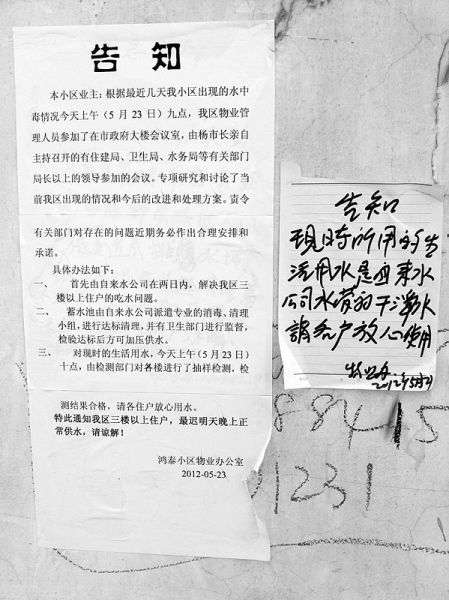 告 知
本小区业主：根据最近几天我小区出现的水中
毒情况今天上午（5 月 23 日）九点，我区物业管
理人员参加了在市政府大楼会议室，由杨市长亲自
主持召开的有住建局、卫生局、水务局等有关部门
局长以上的领导参加的会议。专项研究和讨论了当
前我区出现的情况和今后的改进和处理方案。责令
有关部门对存在的问题近期务必作出合理安排和
承诺。
具体办法如下：
一、 首先由自来水公司在两日内，解决我区三
楼以上住户的吃水问题。
二、 蓄水池由自来水公司派遣专业的消毒、清理
小组，进行达标清理，并有卫生部门进行监督，
检验达标后方可加压供水。
三、 对现时的生活用水，今天上午（5 月 23 日）
十点，由检测部门对各楼进行了抽样检测，检
测结果合格，请各住户放心用水。
特此通知我区三楼以上住户，最迟明天晚上正
常供水，请谅解！
鸿泰小区物业办公室
2012-05-23
告知
现时所用的生
活用水是由来水
公司水管的干净水
請各户放心使用
物业办
2012年5月24
88415
1231